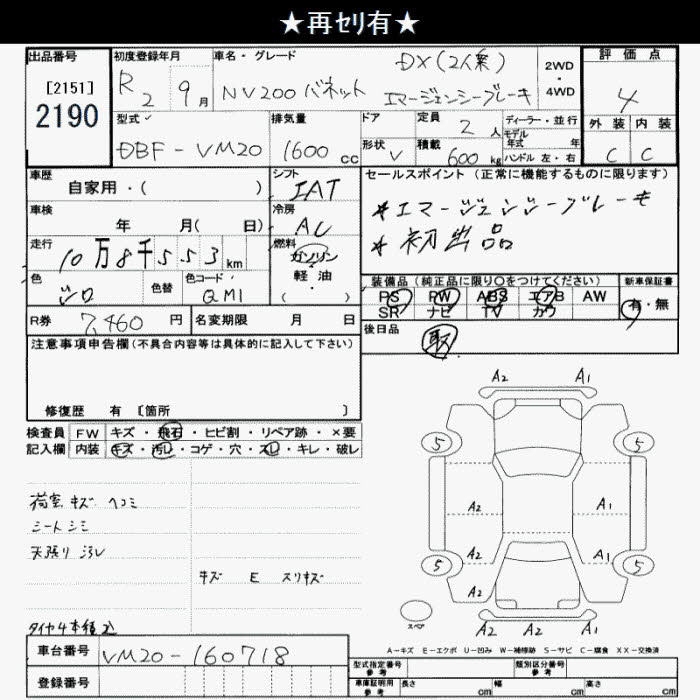 ★再セリ有★
出品番号 初度登録年月 車名・グレード 評価点
[2151]
2190
R2 9月
NV200 バネット DX(2人乗) エマージェンシーブレーキ
2WD・4WD
4
型式 排気量 ドア 定員 2人 ディーラー・並行 外装 内装
モデル年式 年
DBF-VM20 1600cc 形状 V 積載 600kg ハンドル 左・右 C C
車歴 シフト セールスポイント (正常に機能するものに限ります)
自家用・( ) IAT
*エマージェンシーブレーキ
車検 冷房
年 月( 日) AC *初出品
走行 燃料
10万8千553km ガソリン
軽・油
( )
色 色替 色コード
シロ QM1
装備品 (純正品に限り○をつけてください) 新車保証書
PS PW ABS エアB AW 有・無
SR ナビ TV カワ
R券 7,460円 名変期限 月 日
後日品
取
注意事項申告欄(不具合内容等は具体的に記入して下さい)
修復歴 有 [箇所 ]
検査員 FW キズ・飛石・ヒビ割・リペア跡・×要
記入欄 内装 キズ・汚レ・コゲ・穴・スレ・キレ・破レ
荷室 キズ ヘコミ
シート シミ
天張リ 汚レ
キズ E スリキズ
タイヤ4本積込
A2 A1
5 5
A2 A1
A2 A1
5 5
A2
A2 A1
スペア
A-キズ E-エクボ U-凹み W-補修跡 S-サビ C-腐食 XX-交換済
車台番号 VM20-160718
登録番号
型式指定番号 参考 類別区分番号 参考
車庫証明用 参考 長さ cm 幅 cm 高さ cm